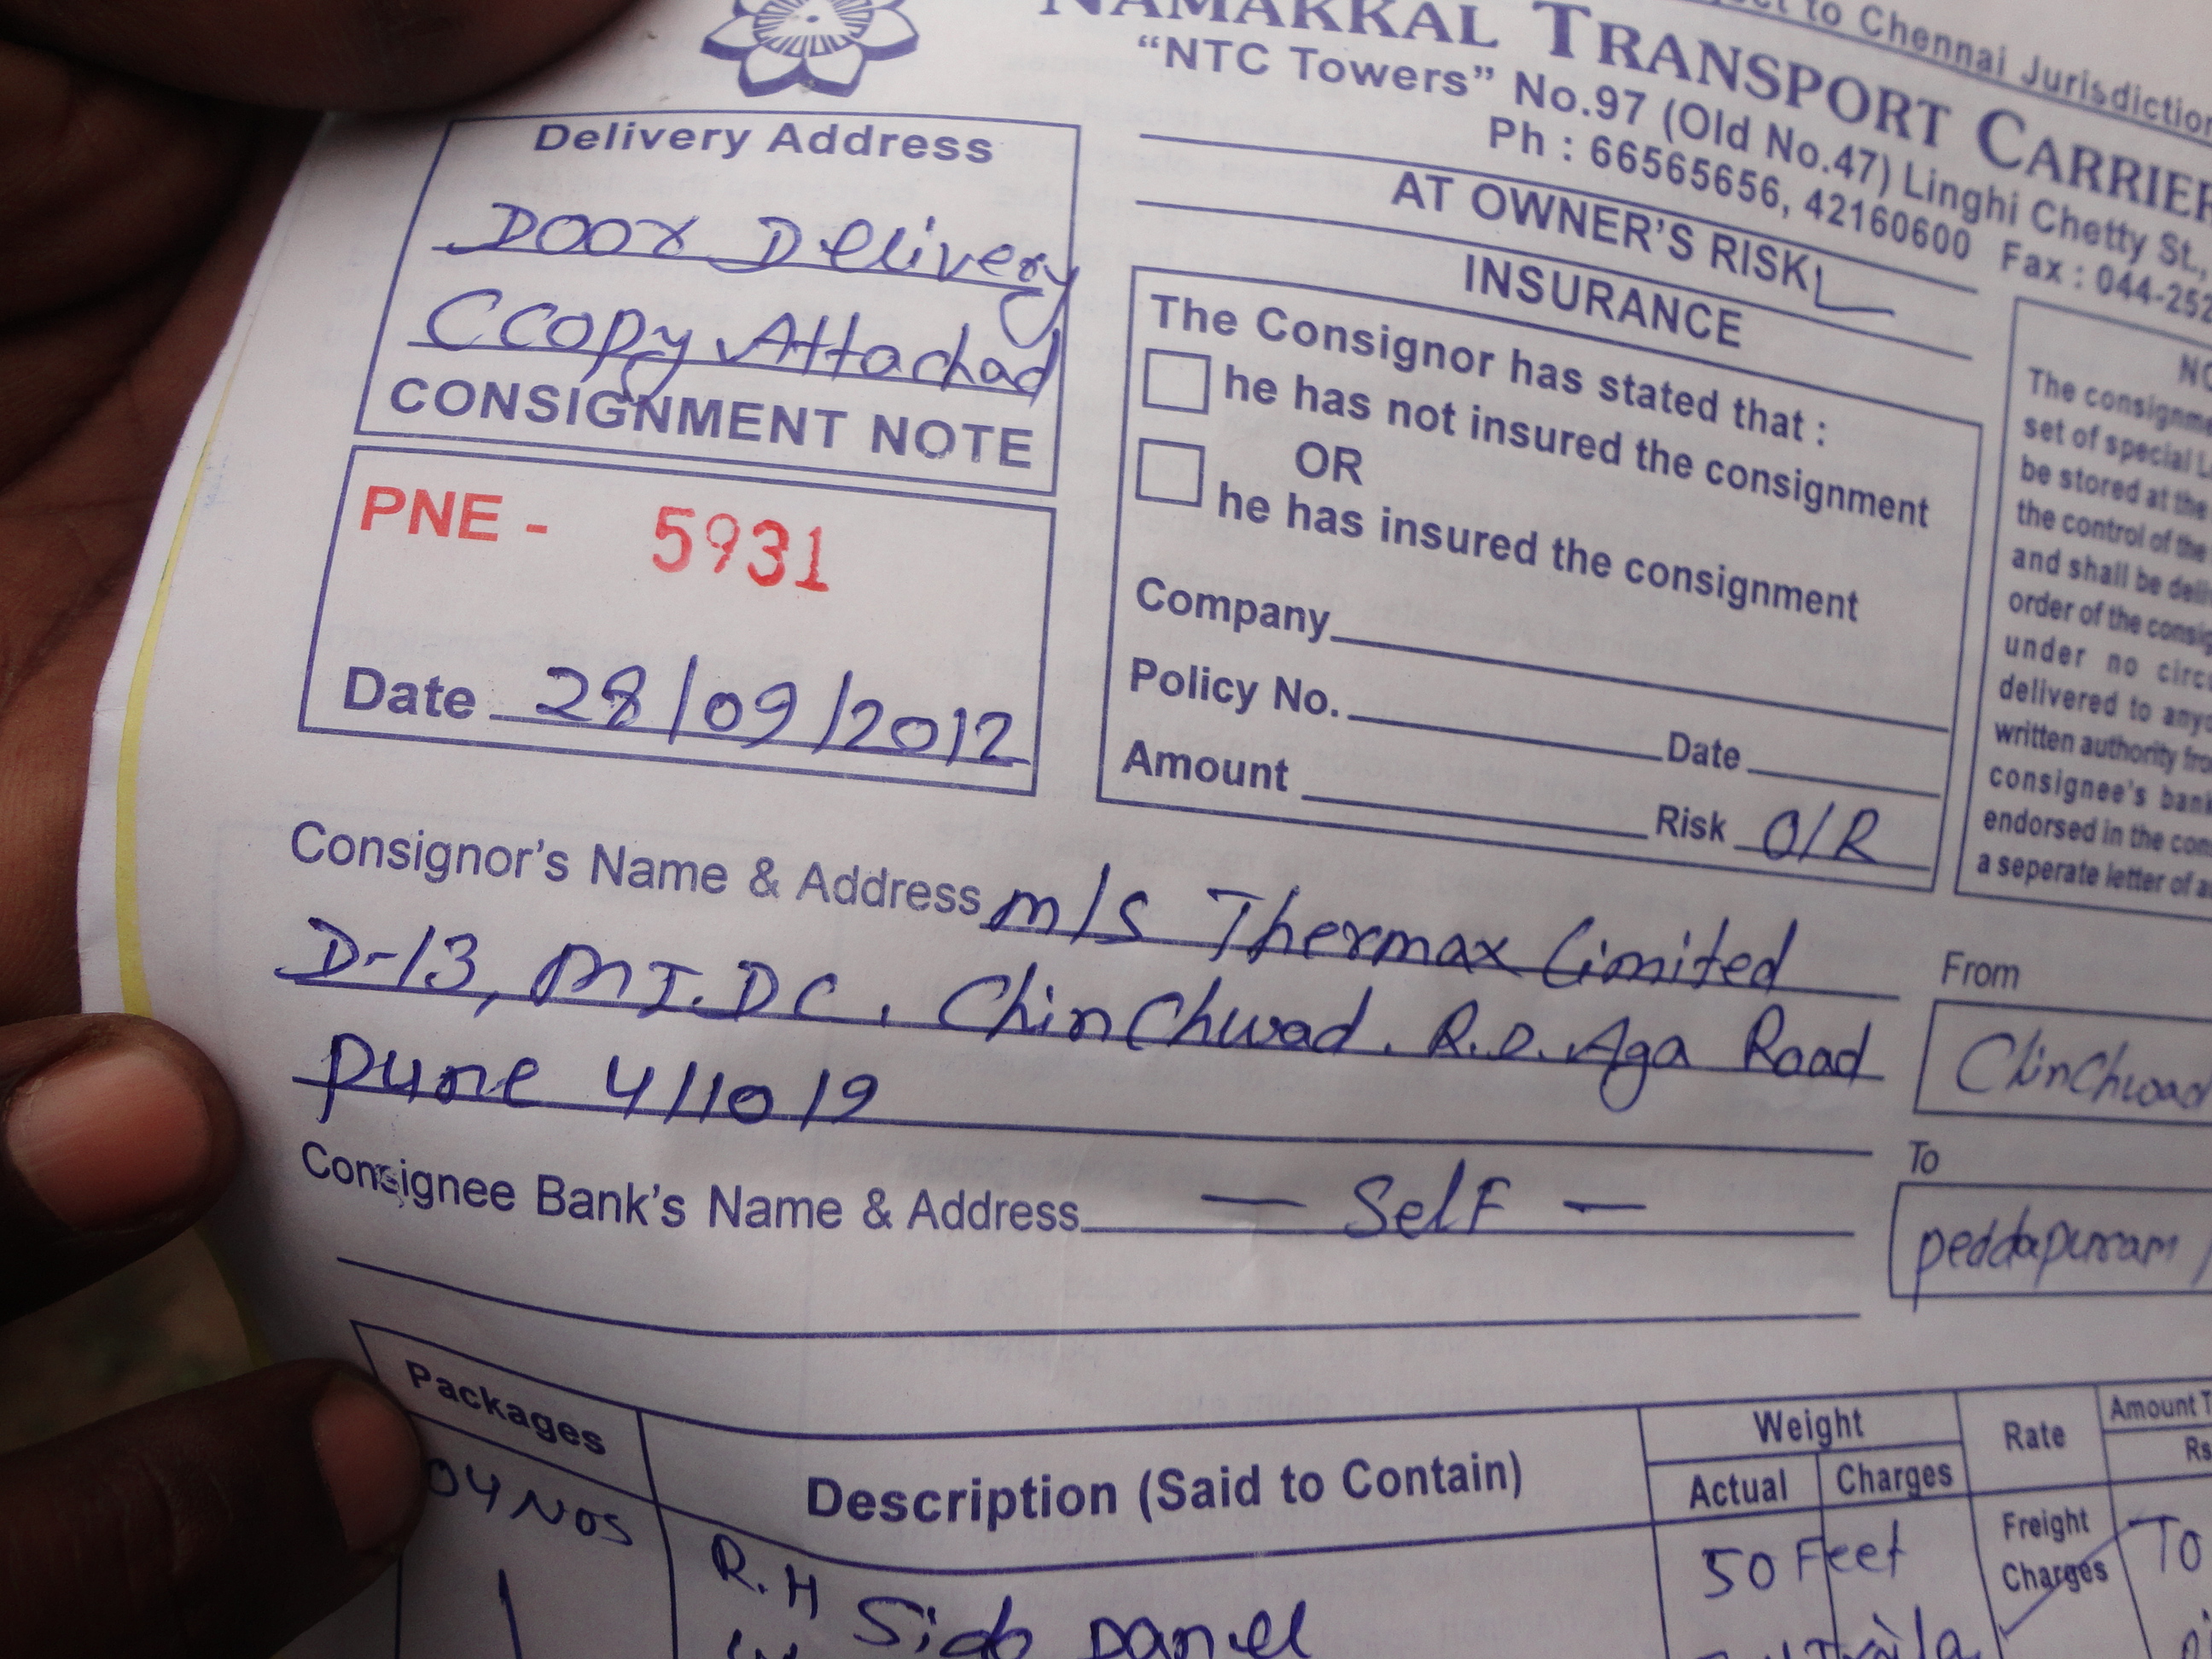 ct to Chennai Jurisdiction
NAMAKKAL TRANSPORT CARRIER
"NTC Towers" No.97 (Old No.47) Linghi Chetty St.,
Ph : 66565656, 42160600 Fax : 044-252
Delivery Address
Door Delivery
CCopy Attachad
CONSIGNMENT NOTE
PNE - 5931
Date 28/09/2012
AT OWNER'S RISK
INSURANCE
The Consignor has stated that :
he has not insured the consignment
OR
he has insured the consignment
Company
Policy No. Date
Amount Risk O/R
NO
The consignme
set of special L
be stored at the
the control of the
and shall be deliv
order of the consig
under no circu
delivered to anyo
written authority fro
consignee's bank
endorsed in the con
a seperate letter of a
Consignor's Name & Address M/S Thermax Limited
D-13, M.I.DC, ChinChwad. R.D. Aga Road
Pune 411019
From
ChinChwad
Consignee Bank's Name & Address — Self —
To
peddapurram
Packages Description (Said to Contain) Weight Rate Amount T
Actual Charges Rs
04 Nos R.H Side panel 50 Feet Freight Charges TO